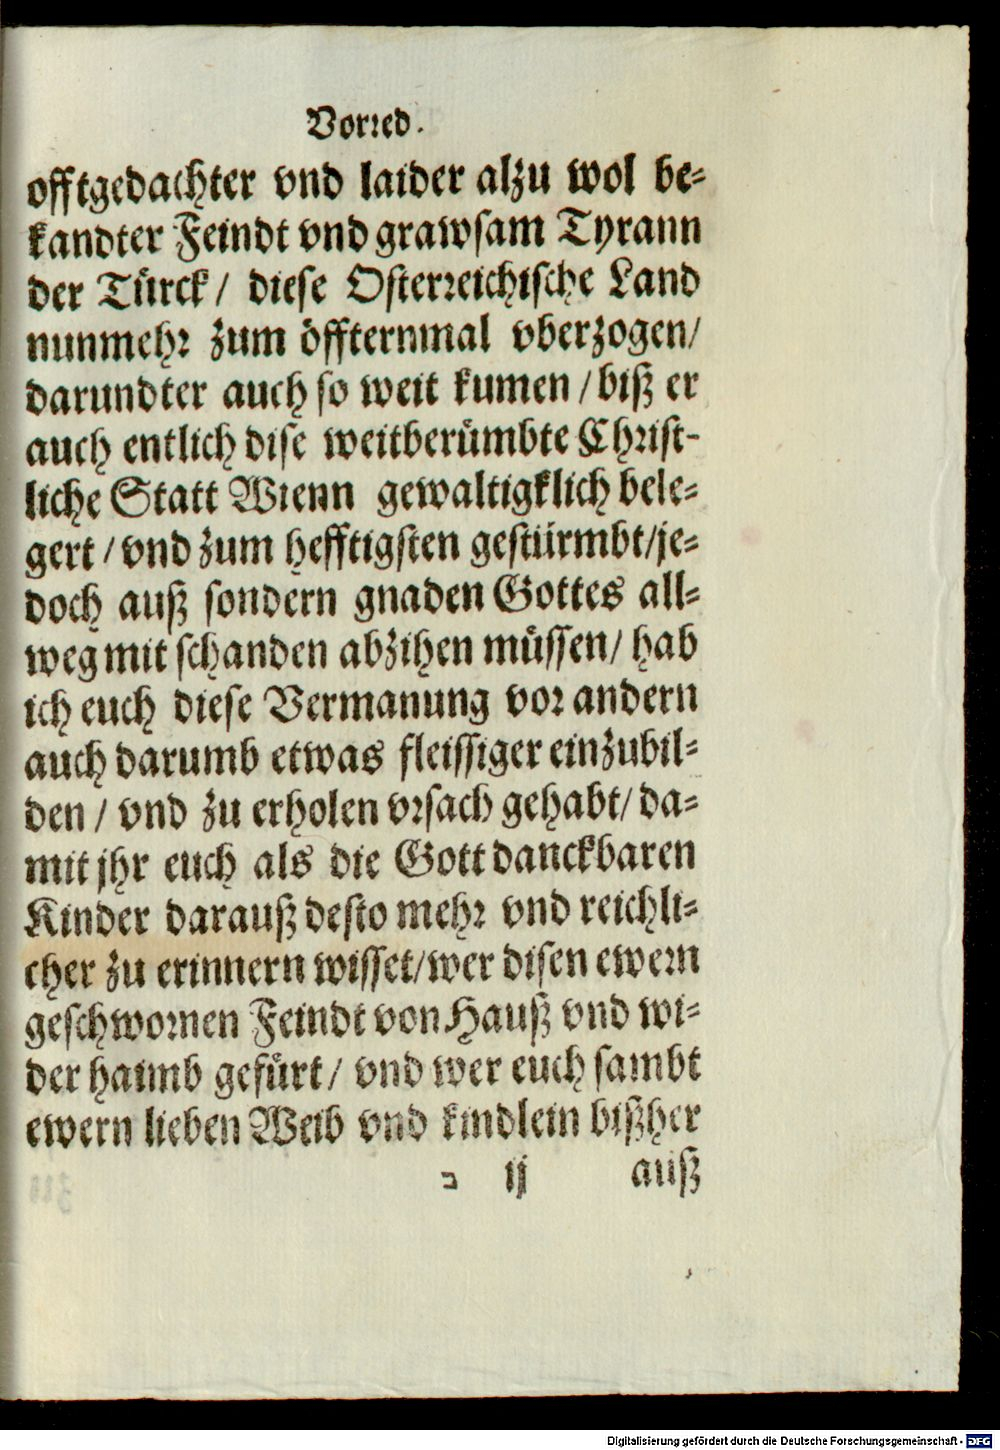 Vorred.
offtgedachter vnd laider alzu wol be-
kandter Feindt vnd grawsam Tyrann
der Türck/ diese Osterreichische Land
nunmehr zum öffternmal vberzogen/
darundter auch so weit kumen/ biß er
auch entlich dise weitberümbte Christ-
liche Statt Wienn gewaltigklich bele-
gert/ vnd zum hefftigsten gestürmbt/ je-
doch auß sondern gnaden Gottes all-
weg mit schanden abzihen müssen/ hab
ich euch diese Vermanung vor andern
auch darumb etwas fleissiger einzubil-
den/ vnd zu erholen vrsach gehabt/ da-
mit jhr euch als die Gott danckbaren
Kinder darauß desto mehr vnd reichli-
cher zu erinnern wisset/ wer disen ewern
geschwornen Feindt von Hauß vnd wi-
der haimb gefürt/ vnd wer euch sambt
ewern lieben Weib vnd kindlein bißher
ij auß
Digitalisierung gefördert durch die Deutsche Forschungsgemeinschaft - DFG